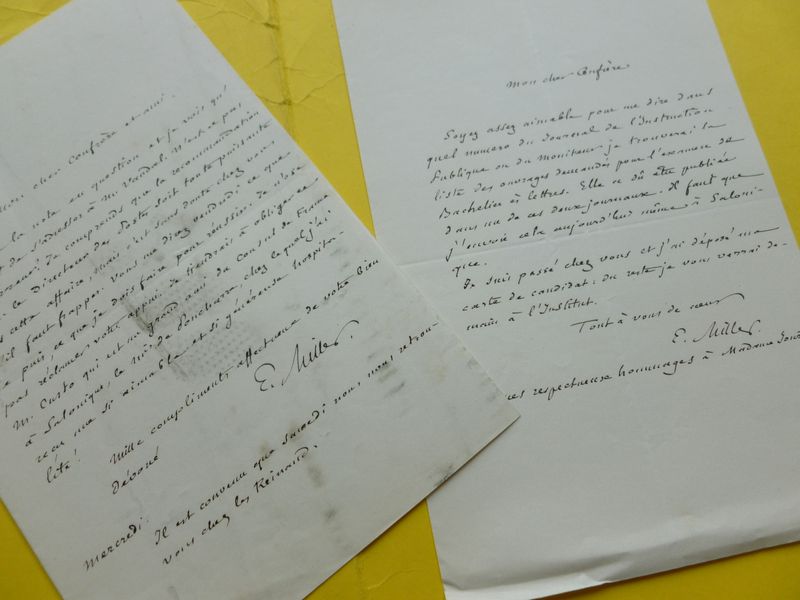 mon cher Confrère et ami.
la note en question et je vois qu'
de s'adresser à Mr Vandal. N'est-ce pas
Je comprends que la recommandation
le directeur des Postes soit toute puissante
cette affaire, mais c'est sans doute chez vous
qu'il faut frapper. Vous me direz vendredi ce que
je puis, ce que je dois faire pour réussir. Je n'ose
pas réclamer votre appui. Je tiendrais à obliger ce
Mr. Custo qui est un grand ami du Consul de France
à Salonique, le mis de Ponchurre, chez lequel j'ai
reçu une si aimable et si généreuse hospita-
lité!
Mille compliments affectueux de votre bien
dévoué
E. Miller.
Mercredi.
Il est convenu que samedi nous nous retrou-
vons chez les Reinaud.
Mon cher Confrère
Soyez assez aimable pour me dire dans
quel numéro du Journal de l'Instruction
Publique ou du Moniteur je trouverai la
liste des ouvrages demandés pour l'examen de
Bachelier ès lettres. Elle a dû être publiée
dans un de ces deux journaux. Il faut que
j'envoie cela aujourd'hui même à Saloni-
que.
Je suis passé chez vous et j'ai déposé ma
carte de candidat. du reste je vous verrai de-
main à l'Institut.
Tout à vous de cœur
E. Miller.
mes respectueux hommages à Madame